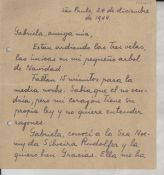 São Paulo, 24 de diciembre
de 1944
Gabriela, amiga mia,
Están ardiendo las tres velas,
las unicas en mi pequeño arbol
de Navidad.
Faltan 15 minutos para la
media noche. Sabia que el no ven-
dria, pero mi corazon tiene su
propia ley y no quiere entender
razones.
Gabriela, conoci a la Sra Noe-
my da Silveira Rudolfer y la
quiero bien. Gracias. Ella me ha